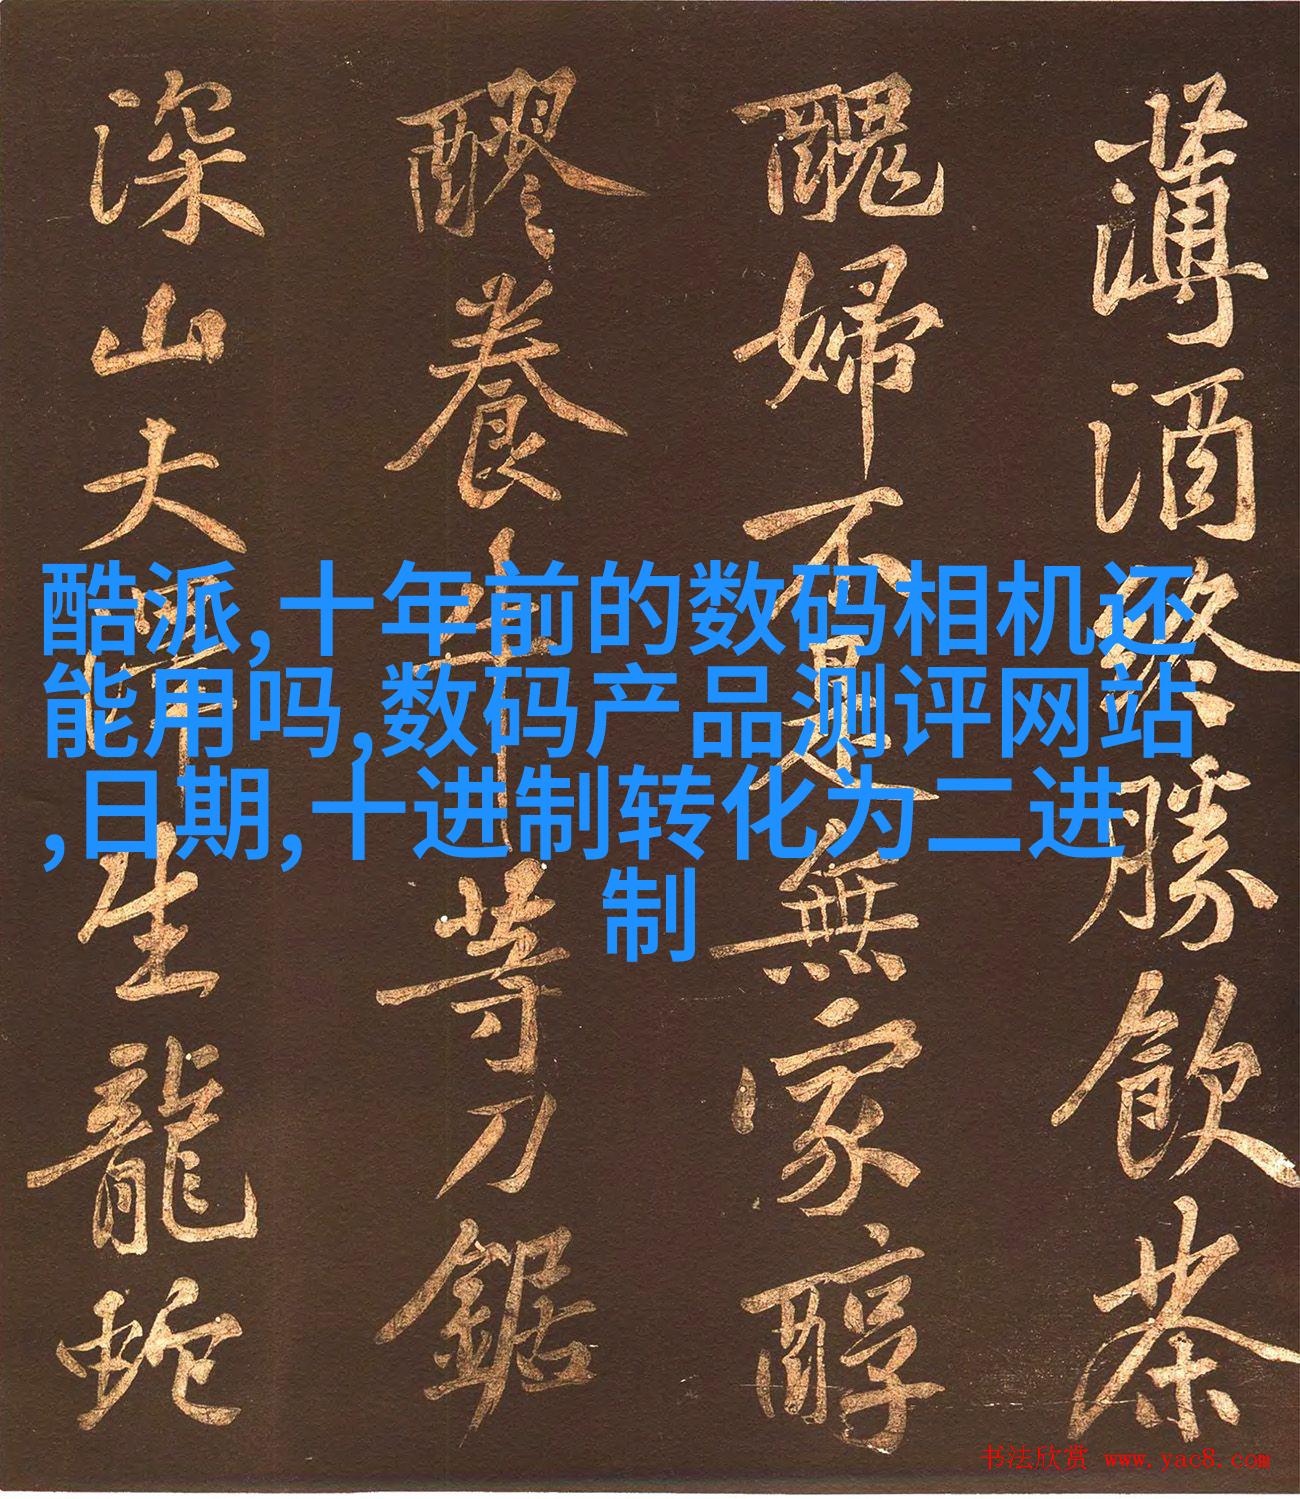 薄酒終勝飲茶
醜婦不是無家醇
醪養牛等刀鋸
深山大澤生龍蛇
酷派,十年前的数码相机还
能用吗,数码产品测评网站
,日期,十进制转化为二进
制
书法欣赏 www.yac8.com